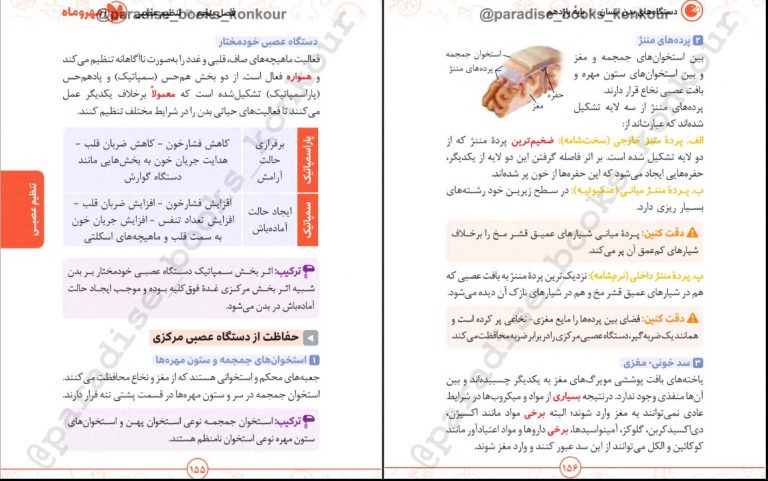 دستگاه‌های بدن انسان
پایه یازدهم
@paradise_books_konkour
۲ پرده‌های مننژ
بین استخوان‌های جمجمه و مغز
و بین استخوان‌های ستون مهره و
بافت عصبی نخاع قرار دارند.
پرده‌های مننژ از سه لایه تشکیل
شده‌اند که عبارت‌اند از:
استخوان جمجمه
پرده‌های مننژ
حفره
مغز
الف. پردهٔ مننژ خارجی (سخت‌شامه): ضخیم‌ترین پردهٔ مننژ که از
دو لایه تشکیل شده است. بر اثر فاصله گرفتن این دو لایه از یکدیگر،
حفره‌هایی ایجاد می‌شود که این حفره‌ها از خون پر شده‌اند.
ب. پردهٔ مننژ میانی (عنکبوتیه): در سطح زیرین خود رشته‌های
بسیار ریزی دارد.
دقت کنین: پردهٔ میانی شیارهای عمیق قشر مخ را برخلاف
شیارهای کم‌عمق آن پر می‌کند.
پ. پردهٔ مننژ داخلی (نرم‌شامه): نزدیک‌ترین پردهٔ مننژ به بافت عصبی که
هم در شیارهای عمیق قشر مخ و هم در شیارهای نازک آن دیده می‌شود.
دقت کنین: فضای بین پرده‌ها را مایع مغزی - نخاعی پر کرده است و
همانند یک ضربه‌گیر، دستگاه عصبی مرکزی را در برابر ضربه محافظت می‌کند.
۳ سد خونی- مغزی
یاخته‌های بافت پوششی مویرگ‌های مغز به یکدیگر چسبیده‌اند و بین
آن‌ها منفذی وجود ندارد. درنتیجه بسیاری از مواد و میکروب‌ها در شرایط
عادی نمی‌توانند به مغز وارد شوند؛ البته برخی مواد مانند اکسیژن،
دی‌اکسیدکربن، گلوکز، آمینواسیدها، برخی داروها و مواد اعتیادآور مانند
کوکائین و الکل می‌توانند از این سد عبور کنند و وارد مغز شوند.
۱۵۶
مهروماه
تنظیم عصبی
@paradise_books_konkour
دستگاه عصبی خودمختار
فعالیت ماهیچه‌های صاف، قلبی و غدد را به‌صورت ناآگاهانه تنظیم می‌کند
و همواره فعال است. از دو بخش هم‌حس (سمپاتیک) و پادهم‌حس
(پاراسمپاتیک) تشکیل‌شده است که معمولاً برخلاف یکدیگر عمل
می‌کنند تا فعالیت‌های حیاتی بدن را در شرایط مختلف تنظیم کنند.
پاراسمپاتیک
برقراری
حالت
آرامش
کاهش فشارخون - کاهش ضربان قلب -
هدایت جریان خون به بخش‌هایی مانند
دستگاه گوارش
سمپاتیک
ایجاد حالت
آماده‌باش
افزایش فشارخون - افزایش ضربان قلب -
افزایش تعداد تنفس - افزایش جریان خون
به سمت قلب و ماهیچه‌های اسکلتی
ترکیب: اثر بخش سمپاتیک دستگاه عصبی خودمختار بر بدن
شبیه اثر بخش مرکزی غدهٔ فوق‌کلیه بوده و موجب ایجاد حالت
آماده‌باش در بدن می‌شود.
حفاظت از دستگاه عصبی مرکزی
۱ استخوان‌های جمجمه و ستون مهره‌ها
جعبه‌های محکم و استخوانی هستند که از مغز و نخاع محافظت می‌کنند.
استخوان جمجمه در سر و ستون مهره‌ها در قسمت پشتی تنه قرار دارند.
ترکیب: استخوان جمجمه نوعی استخوان پهن و استخوان‌های
ستون مهره نوعی استخوان نامنظم هستند.
۱۵۵
تنظیم عصبی
@paradise_books_konkour
@paradise_books_konkour